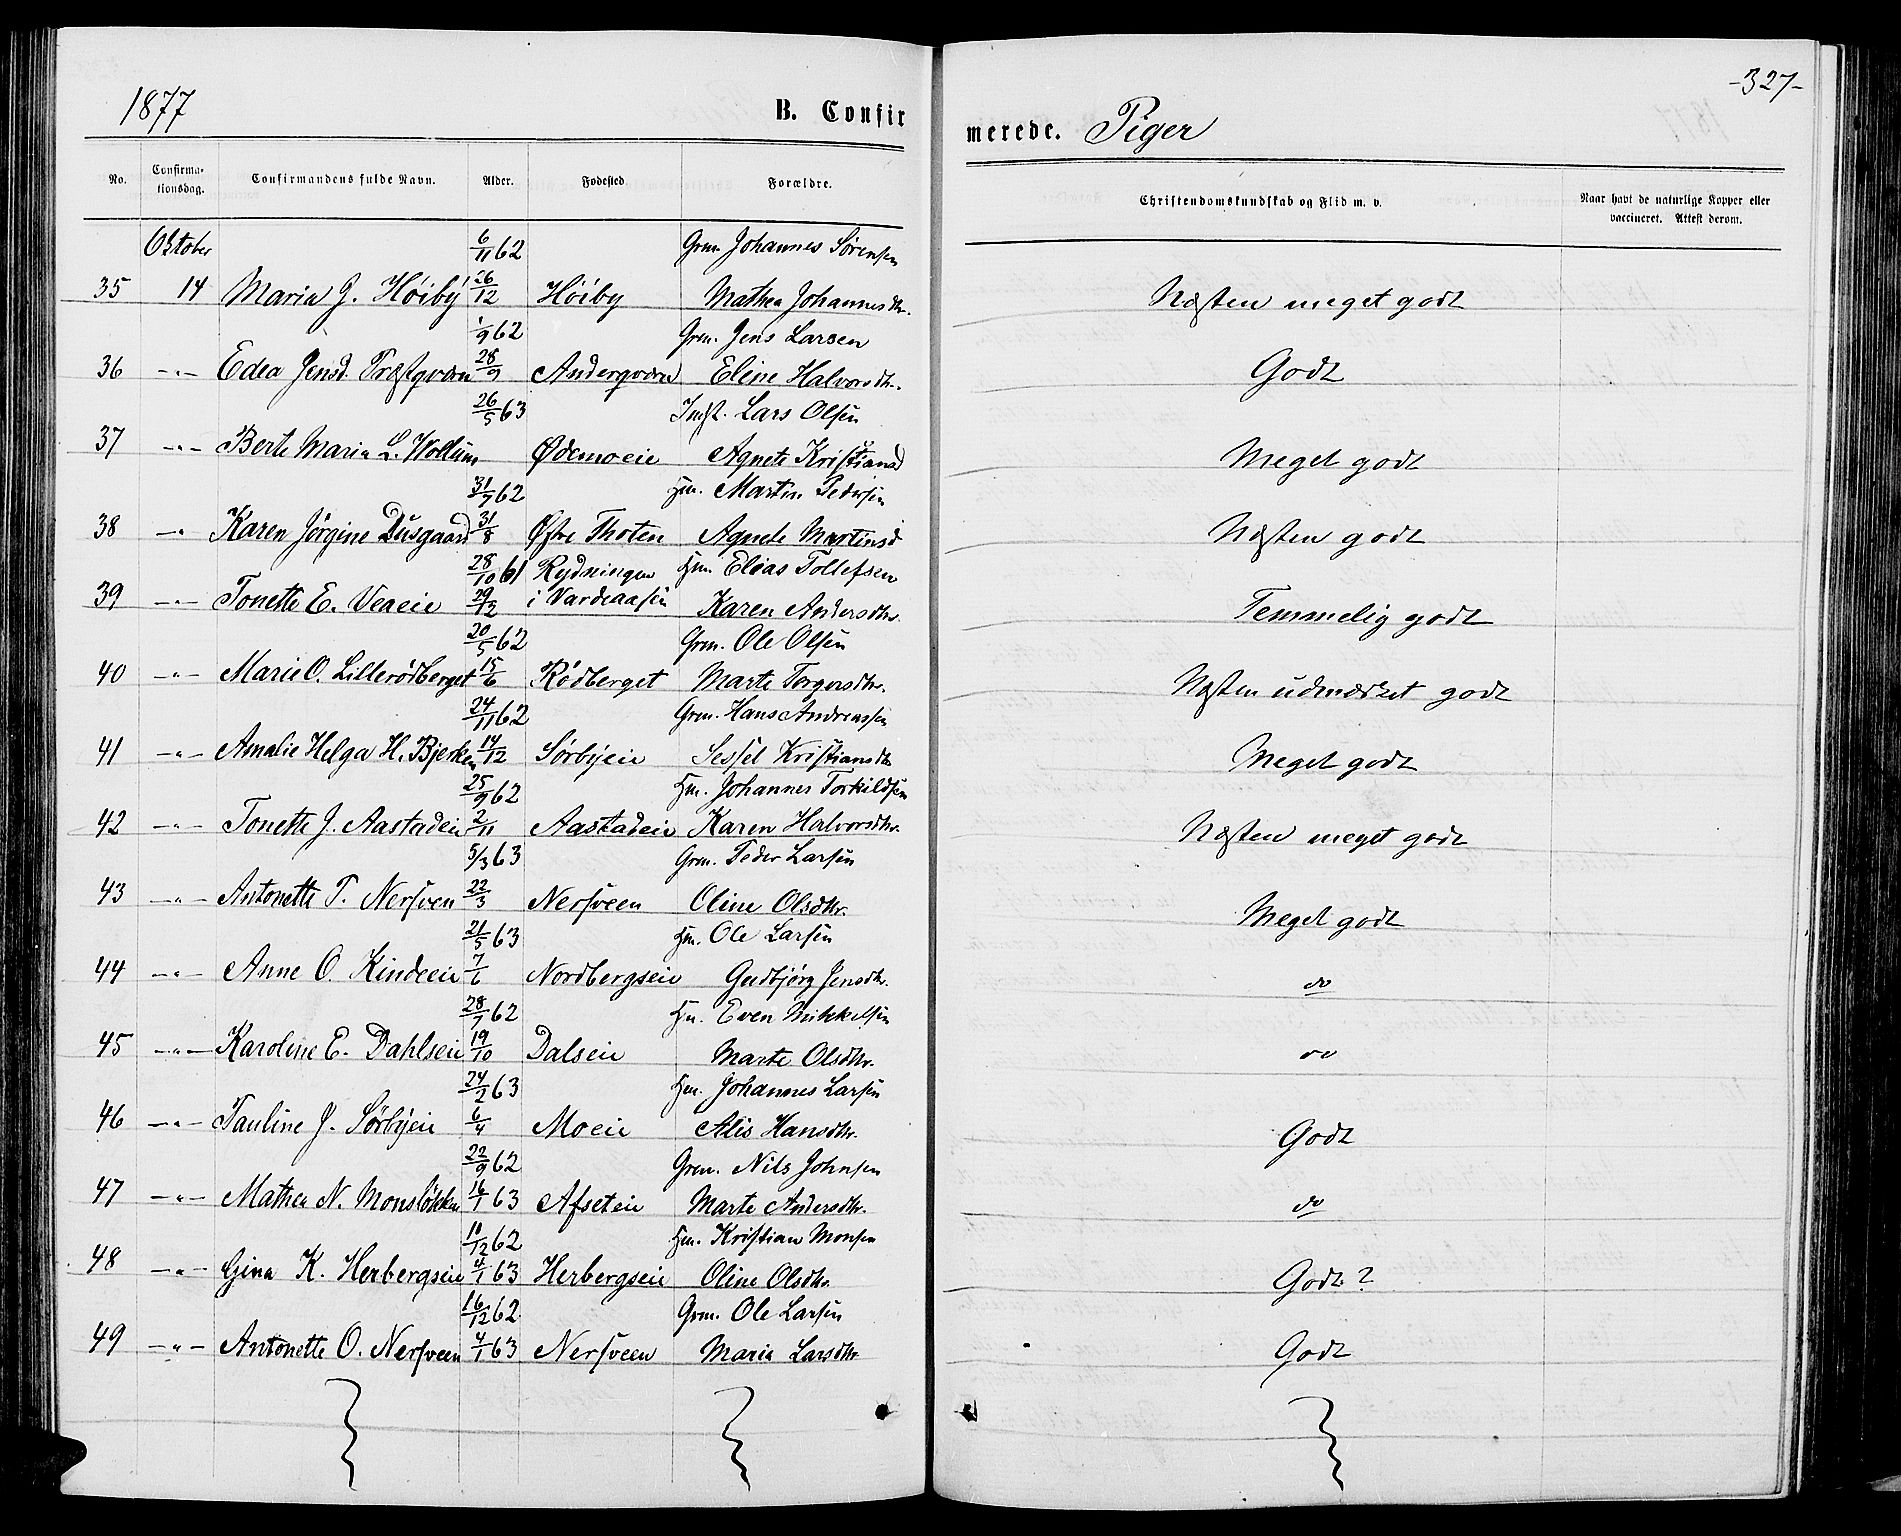 1877
B. Confir
merede. Piger
-327-
No. Confirma-tionsdag. Confirmandens fulde Navn. Alder. Fødested Forældre. Christendomskundskab og Flid m. v. Naar havt de naturlige Kopper eller vaccineret. Attest derom.
Oktober 6/11 62 Grm. Johannes Sørensen
35 14 Maria J. Høiby 26/12 Høiby Mathea Johannesdtr. Næsten meget godt
1/9 62 Grm. Jens Larsen
36 -"- Edea Jensd. Præstqværn 28/9 Anderqværn Eline Halvorsdtr. Godt
26/5 63 Indst. Lars Olsen
37 -"- Berte Maria L. Wollum Ødemoeie Agnete Kristiansd Meget godt
31/7 62 Hm. Martin Pedersen
38 -" Karen Jørgine Dusgaard 31/8 Østre Thoten Agnete Martinsd Næsten godt
28/10 61 Rydningen Hm. Elias Tollefsen
39 -"- Tonette E. Veaeie 29/12 i Vardeaasen Karen Andersdtr. Temmelig godt
20/5 62 Grm. Ole Olsen
40 -"- Marie O. Lillerødberget 15/6 Rødberget Marte Torgersdtr. Næsten udmærket godt
24/11 62 Grm. Hans Andreassen
41 -"- Amalie Helga H. Bjerken 14/12 Sørbyeie Sessel Kristiansdtr Meget godt
25/9 62 Hm. Johannes Torkildsen
42 -"- Tonette J. Aastadeie 2/11 Aastadeie Karen Halvorsdtr. Næsten meget godt
5/3 63 Grm. Peder Larsen
43 -"- Antonette P. Nersveen 22/3 Nersveen Oline Olsdtr. Meget godt
21/5 63 Hm. Ole Larsen
44 -"- Anne O. Kindeeie 7/6 Nordbergseie Gudbjørg Jensdtr. do
28/7 62 Hm. Even Mikkelsen
45 -"- Karoline E. Dahlseie 19/10 Dalseie Marte Olsdtr. do
24/2 63 Hm. Johannes Larsen
46 -"- Pauline J. Sørbyeie 6/4 Moeie Alis Hansdtr. Godt
22/9 62 Grm. Nils Johnsen
47 -"- Mathea N. Monsløkken 16/1 63 Afseteie Marte Andersdtr. do
10/12 62 Hm. Kristian Monsen
48 -"- Gina K. Herbergseie 4/1 63 Herbergseie Oline Olsdtr. Godt?
16/12 62 Grm. Ole Larsen
49 -"- Antonette O. Nersveen 4/1 63 Nersveen Maria Larsdtr Godt